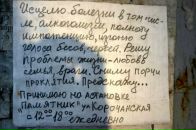 Исцелю болезни в том чис-
ле, алкоголизм, колмот,
импотенцию, изгоню
голоса бесов, чертей. Решу
проблемы жизни - любовь
семья, враги. Сниму порчи
проклятия. Предскажу...
Принимаю на остановке
"Памятник" ул Корочанская
с 12 00 18 00 ежедневно